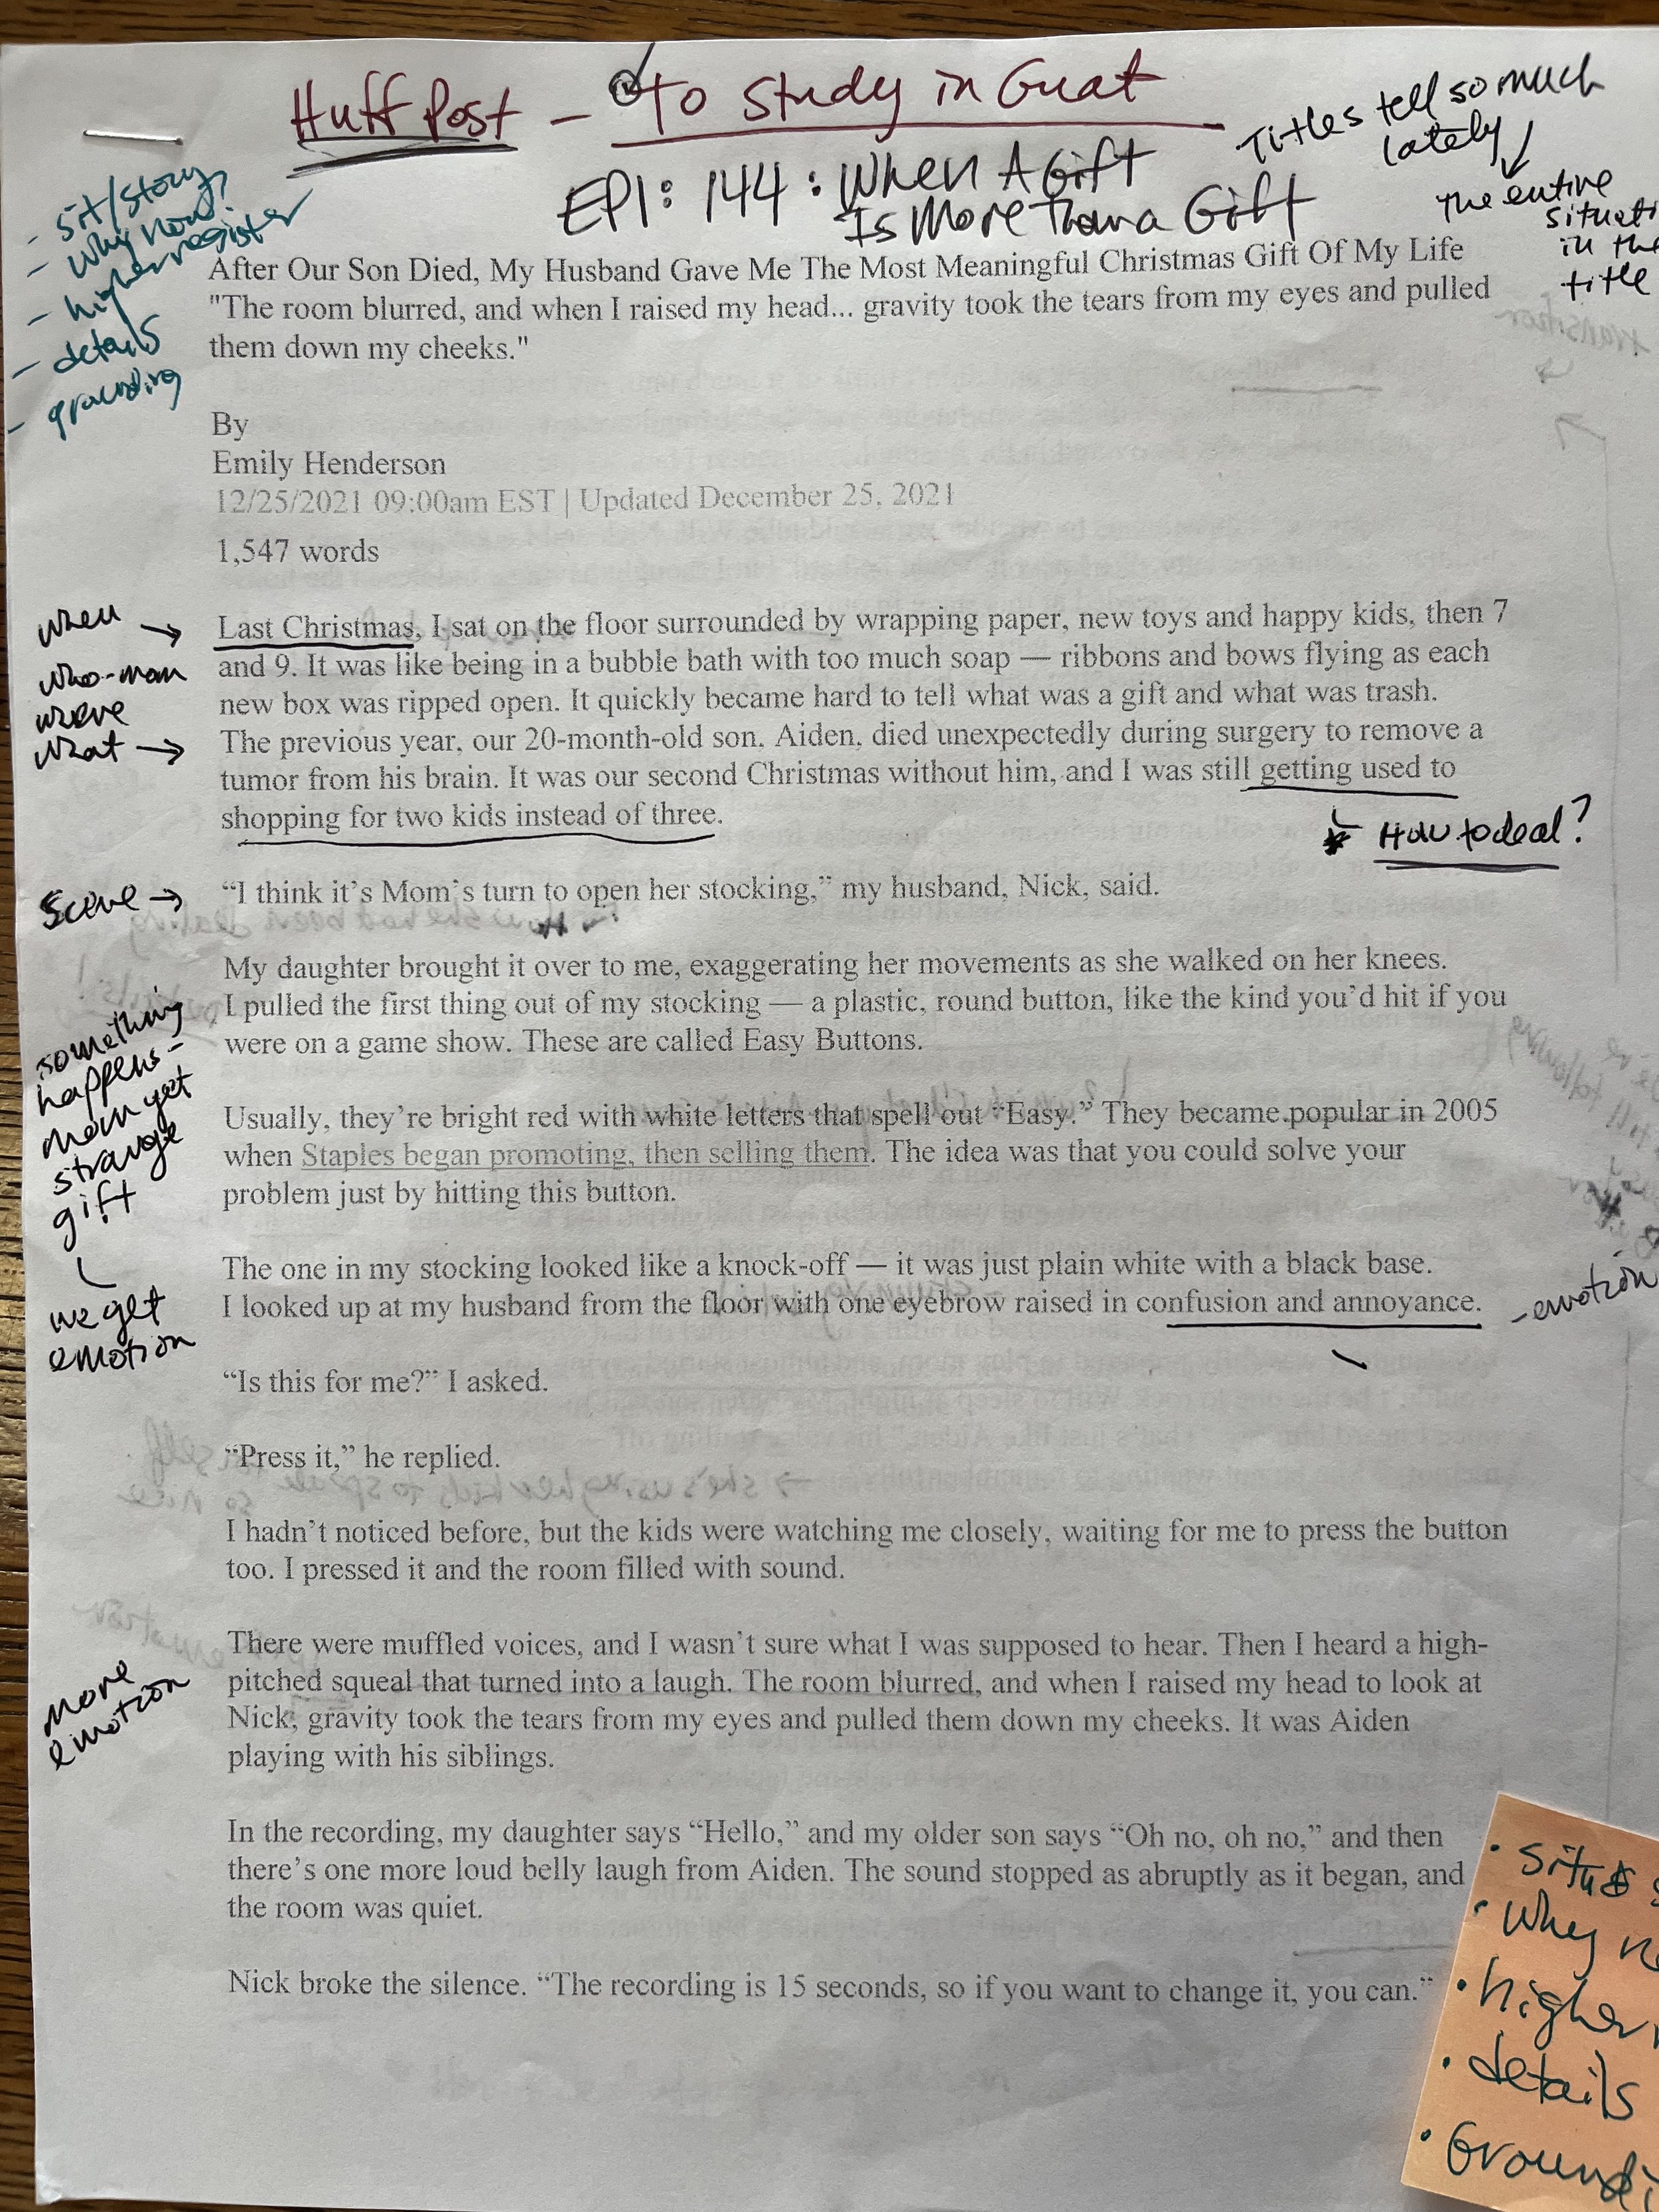 Huff Post - To Study in Guat
EPI: 144: When A Gift
Is More Than a Gift
Titles tell so much
lately
The entire
situati
in the
title
- sit/story
- why now?
- higher register
- details
- grounding
After Our Son Died, My Husband Gave Me The Most Meaningful Christmas Gift Of My Life
"The room blurred, and when I raised my head... gravity took the tears from my eyes and pulled
them down my cheeks."
By
Emily Henderson
12/25/2021 09:00am EST | Updated December 25, 2021
1,547 words
when
who-mom
where
what
Last Christmas, I sat on the floor surrounded by wrapping paper, new toys and happy kids, then 7
and 9. It was like being in a bubble bath with too much soap — ribbons and bows flying as each
new box was ripped open. It quickly became hard to tell what was a gift and what was trash.
The previous year, our 20-month-old son, Aiden, died unexpectedly during surgery to remove a
tumor from his brain. It was our second Christmas without him, and I was still getting used to
shopping for two kids instead of three.
How to deal?
Scene
“I think it’s Mom’s turn to open her stocking,” my husband, Nick, said.
My daughter brought it over to me, exaggerating her movements as she walked on her knees.
I pulled the first thing out of my stocking — a plastic, round button, like the kind you’d hit if you
were on a game show. These are called Easy Buttons.
something
happens -
mom get
strange
gift
we get
emotion
Usually, they’re bright red with white letters that spell out “Easy.” They became popular in 2005
when Staples began promoting, then selling them. The idea was that you could solve your
problem just by hitting this button.
The one in my stocking looked like a knock-off — it was just plain white with a black base.
I looked up at my husband from the floor with one eyebrow raised in confusion and annoyance.
- emotion
“Is this for me?” I asked.
“Press it,” he replied.
I hadn’t noticed before, but the kids were watching me closely, waiting for me to press the button
too. I pressed it and the room filled with sound.
more
emotion
There were muffled voices, and I wasn’t sure what I was supposed to hear. Then I heard a high-
pitched squeal that turned into a laugh. The room blurred, and when I raised my head to look at
Nick, gravity took the tears from my eyes and pulled them down my cheeks. It was Aiden
playing with his siblings.
In the recording, my daughter says “Hello,” and my older son says “Oh no, oh no,” and then
there’s one more loud belly laugh from Aiden. The sound stopped as abruptly as it began, and
the room was quiet.
Nick broke the silence. “The recording is 15 seconds, so if you want to change it, you can.”
• Situ
• Why
• higher
• details
• Groundi